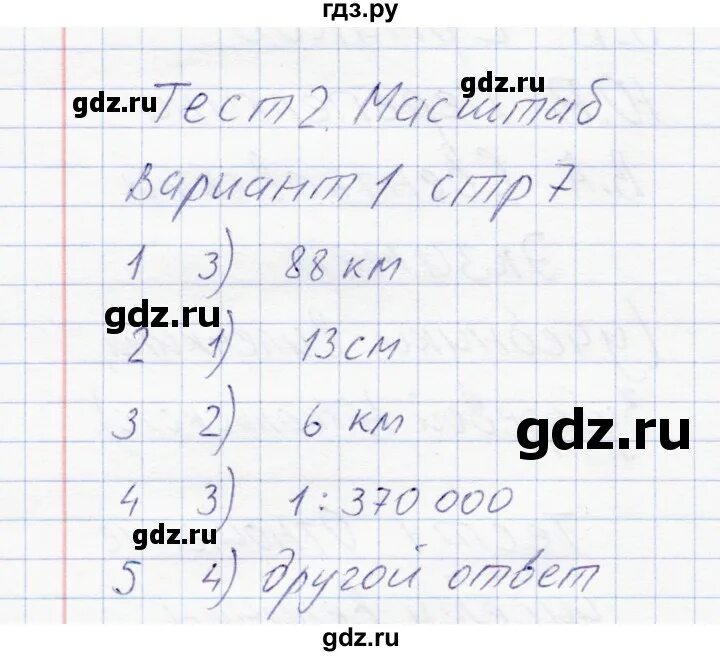 гдз.ру
gdz.ru
gdz.ru
Тест 2. Масштаб
Вариант 1 стр 7
1 3) 88 км
gdz.ru
2 1) 13 см
3 2) 6 км
gdz.ru
4 3) 1 : 370 000
gdz.ru
5 4) другой ответ
gdz.ru